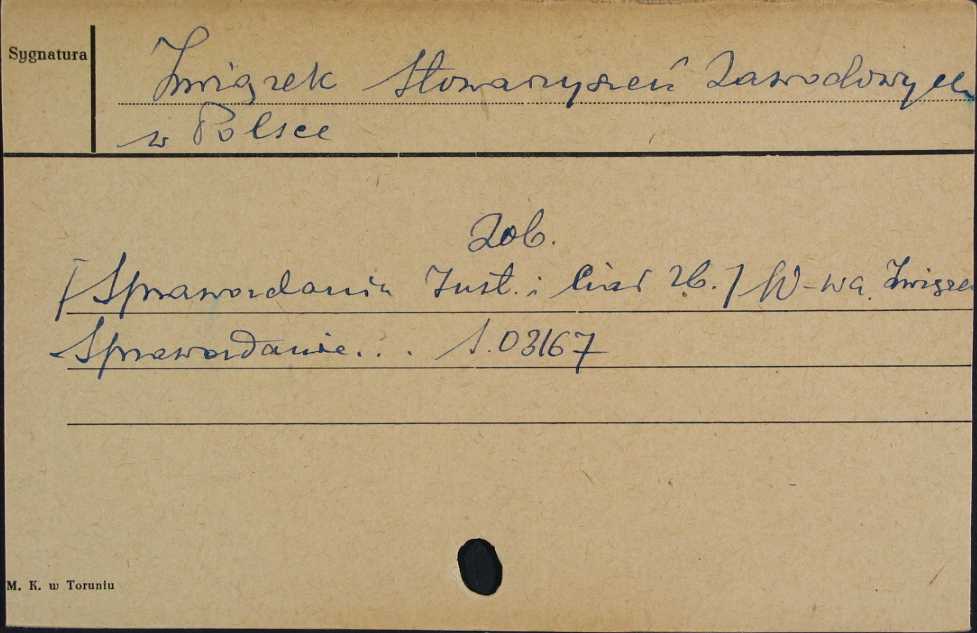 Sygnatura
Związek Stowarzyszeń Zawodowych
w Polsce
Zob.
[Sprawozdania Inst. i Ciał Zb.] W-wa. Związe
Sprawozdanie... S.03167
M. K. w Toruniu